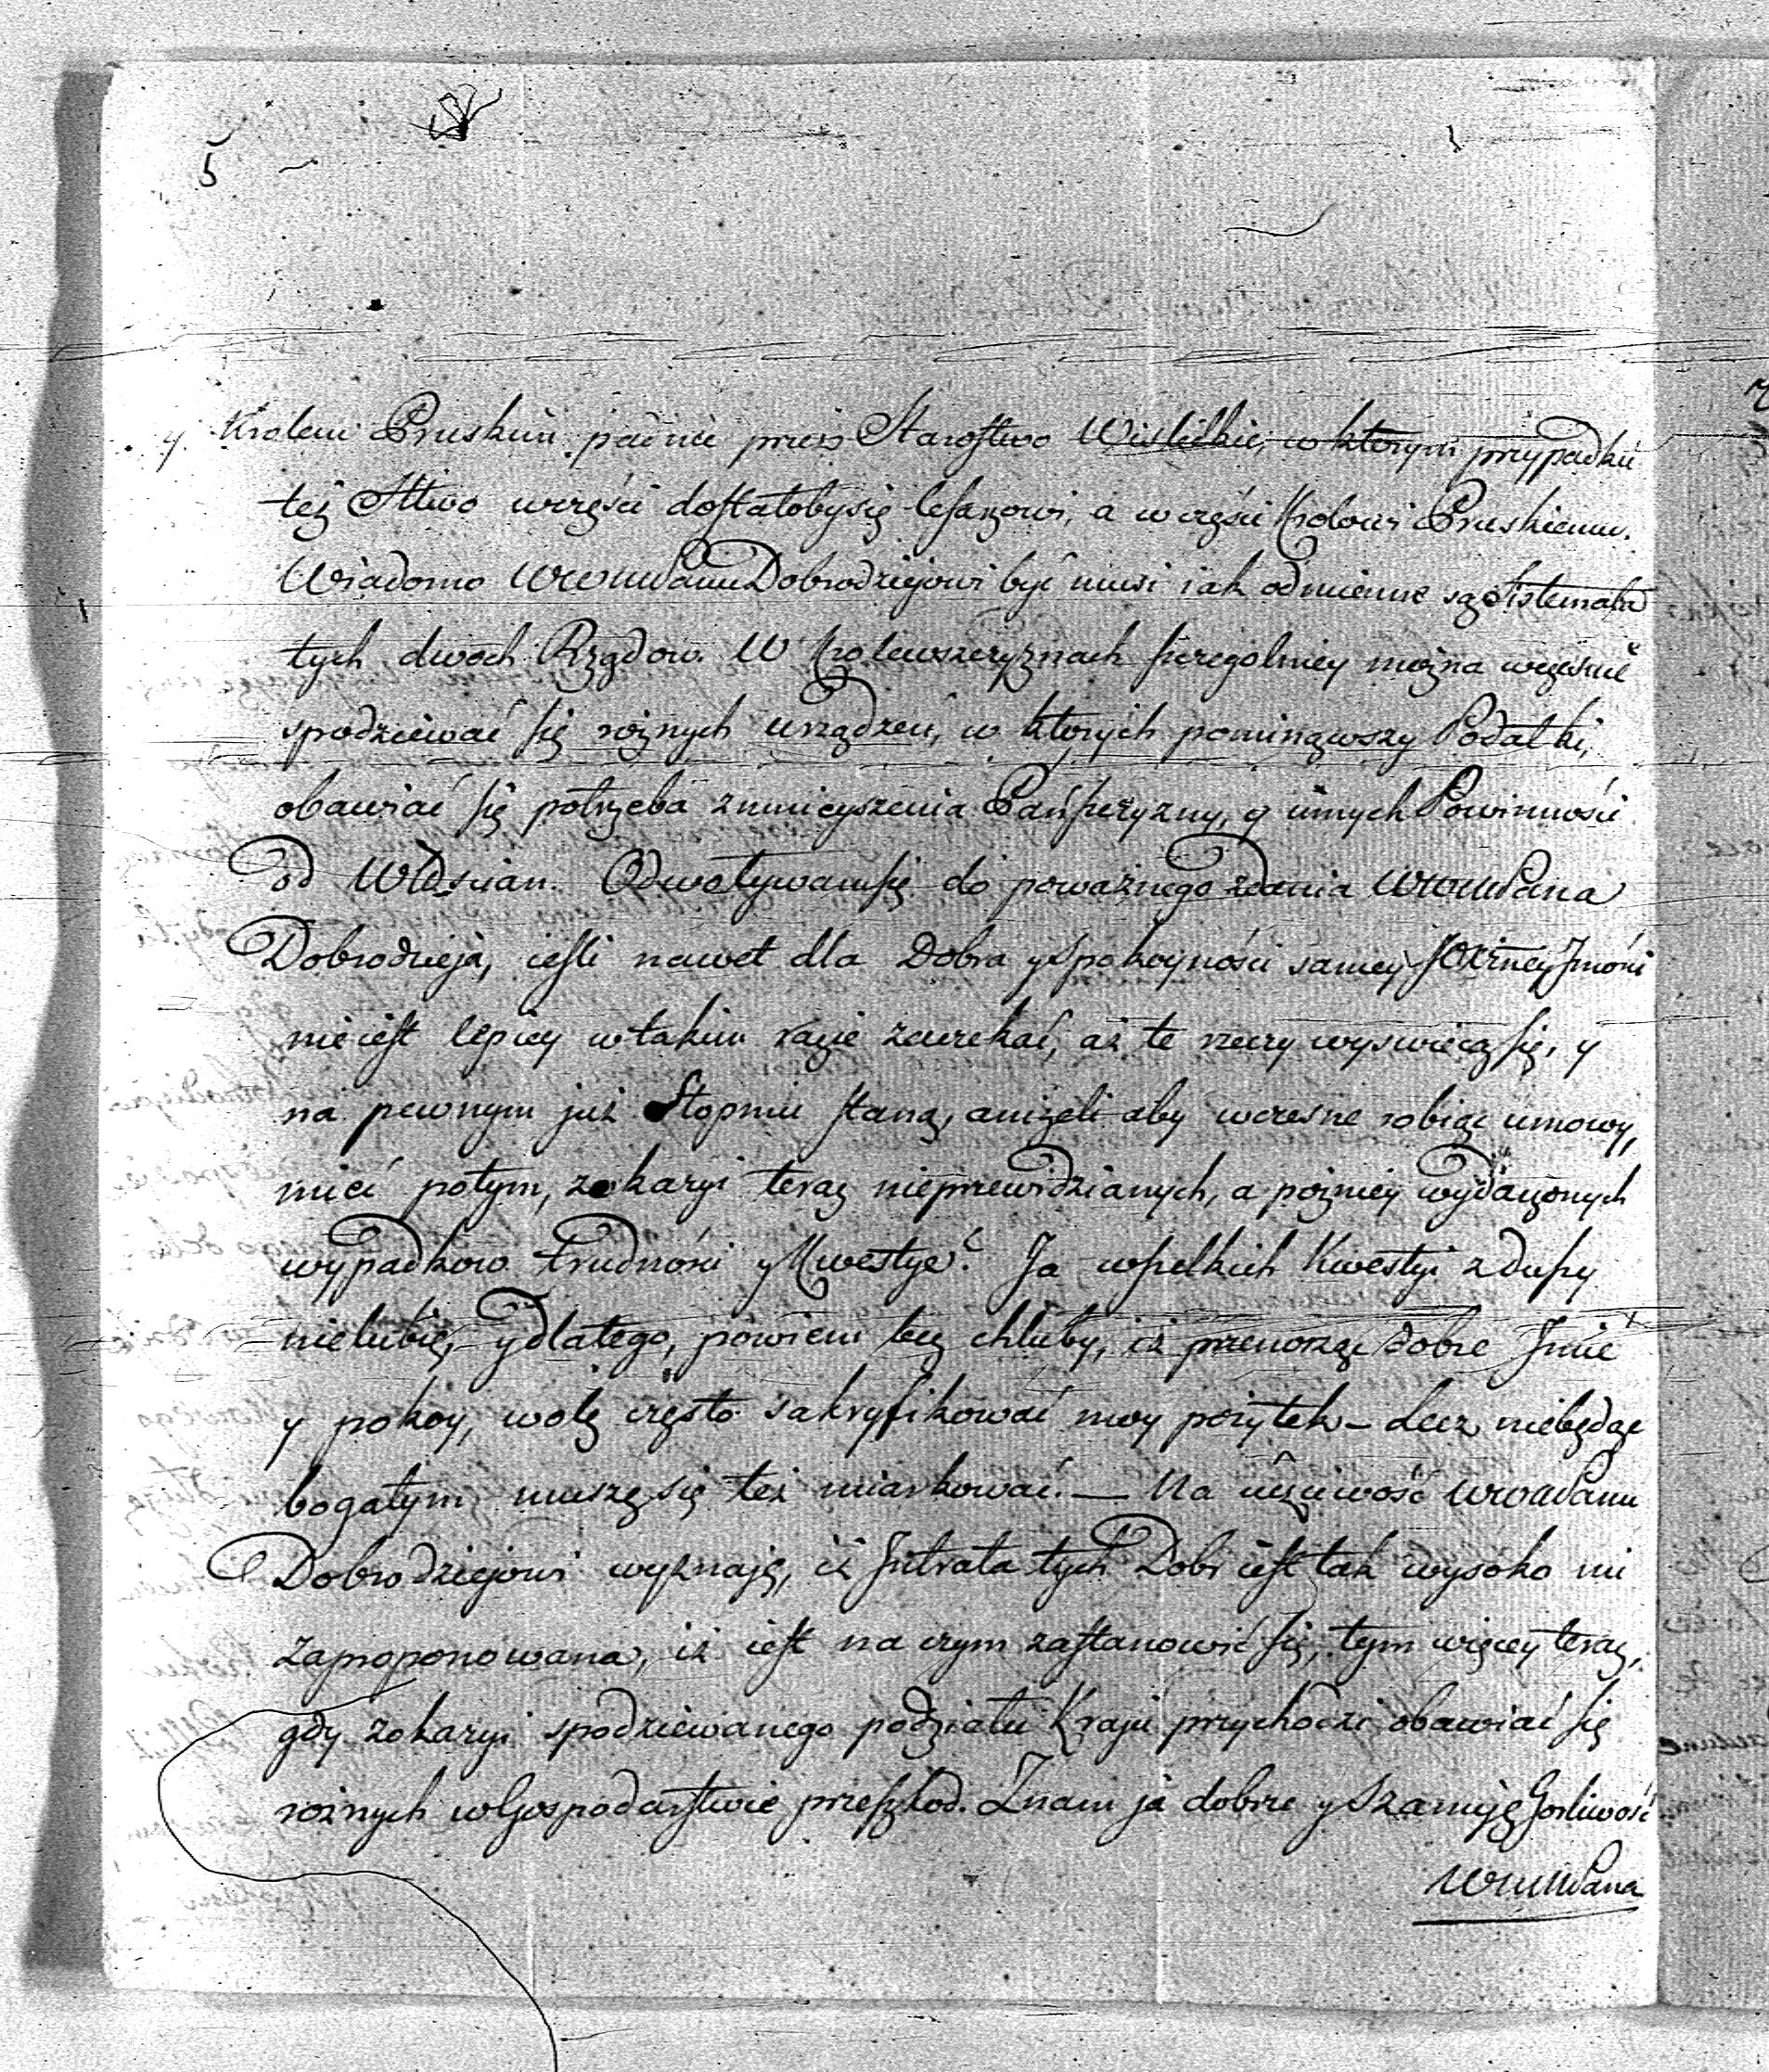 5
y Krolem Pruskim padnie przez Starostwo Wislickie, w ktorym przypadku
też Sttwo wczęści dostałobysię Cesarzowi, a wczęści Krolowi Pruskiemu.
Wiadomo WWMPanu Dobrodziejowi być musi iak odmienne są Sistemata
tych dwoch Rządow. W Krolewszczyznach szczegolniey można wcześnie
spodziewać się rożnych urządzeń, w ktorych pominąwszy Podatki,
obawiać się potrzeba zmnieyszenia Pańszczyzny, y innych Powinności
od Włościan. Odwoływam się do poważnego zdania WWMPana
Dobrodzieja, iesli nawet dla Dobra y Spokoyności samey Jmości
nie iest lepiey w takim razie zaczekać, aż te rzeczy wyswiecą się, y
na pewnym już Stopniu staną, aniżeli aby wczesne robiąc umowy,
mieć potym, z okazyi teraz nieprzewidzianych, a pozniey wydarzonych
wypadkow trudności y Kwestye? Ja wszelkich Kwestyi z duszy
nielubię, y dlatego, powiem bez chluby, iż przenosząc dobre Jmie
y pokoy, wolę często sakryfikować moy pożytek – Lecz niebędąc
bogatym muszę się też miarkować. — Na uczciwość WWMPanu
Dobrodziejowi wyznaję, iż Jntrata tych Dobr iest tak wysoko mi
zaproponowana, iż iest na czym zastanowić się, tym więcey teraz,
gdy z okazyi spodziewanego podziału Kraju przychodzi obawiać się
rożnych w Gospodarstwie przeszkod. Znam ja dobrze y Szanuję Gorliwość
WWMPana